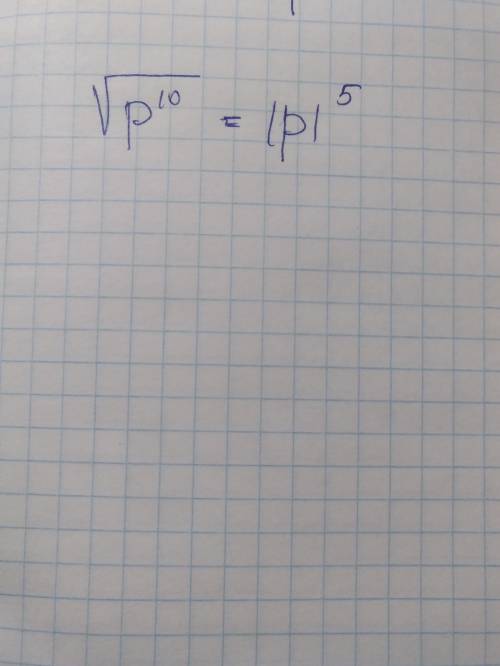 √p¹⁰ = |p|⁵